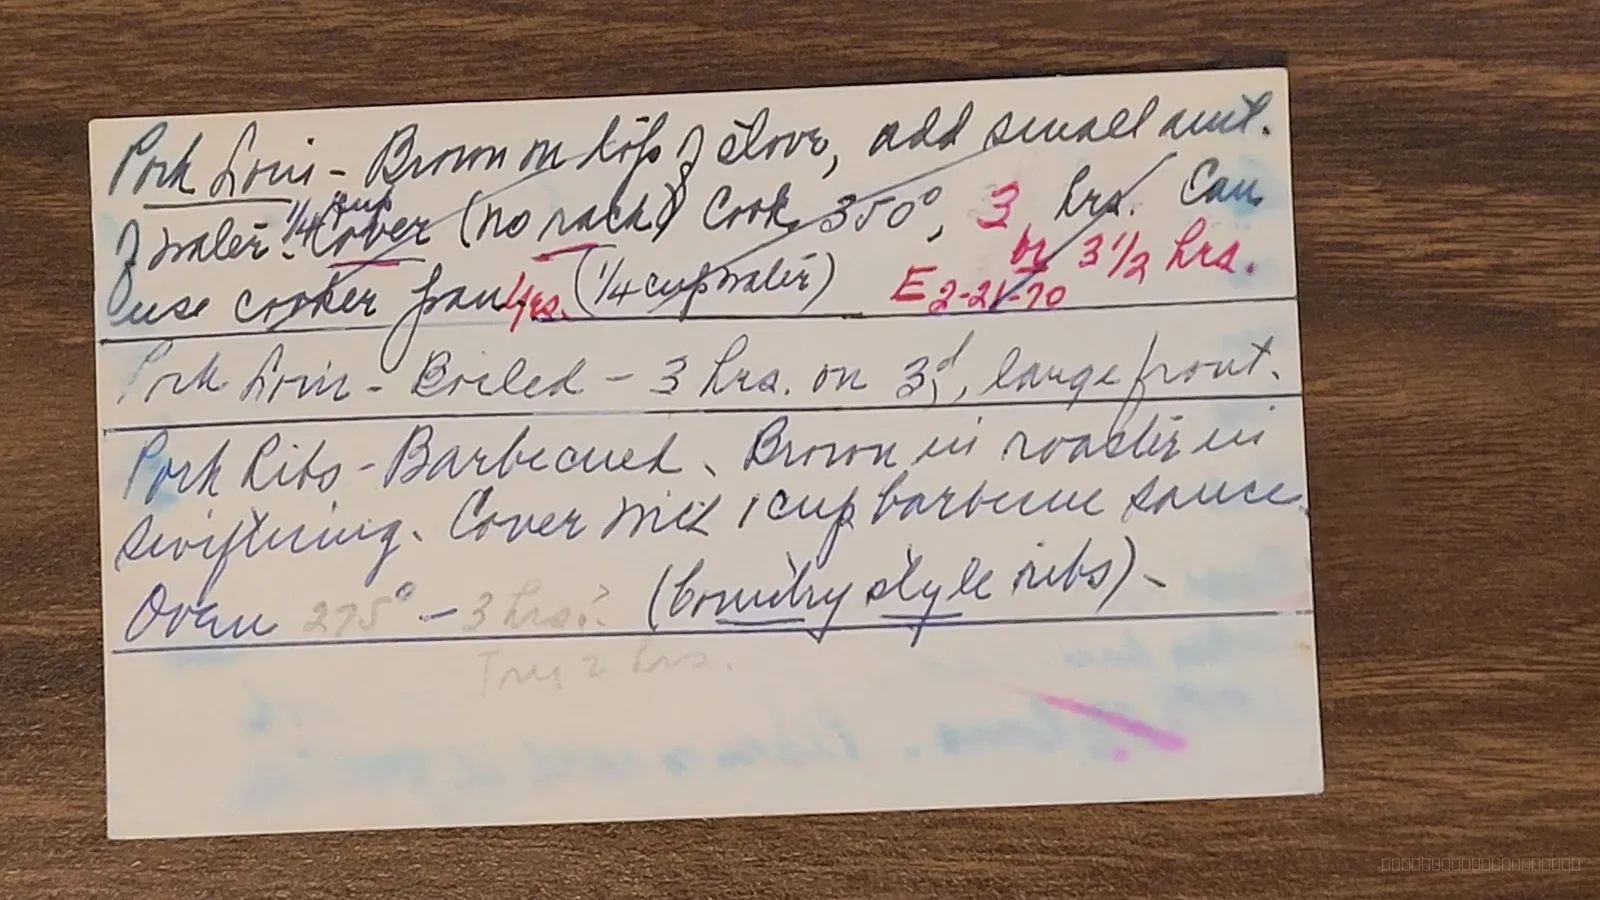 Pork Loin - Brown on top of stove, add small amt.
of water. 1/4 cup Cover (no rack) Cook 350°, 3 hrs. Can
or 3 1/2 hrs.
use cooker pan. Yes. (1/4 cup water) E 2-21-70
Pork Loin - Boiled - 3 hrs. on 3, large front.
Pork Ribs - Barbecued. Brown in roaster in
swiftning. Cover with 1 cup barbecue sauce
Oven 275° - 3 hrs. (Country style ribs) -
Try 2 hrs.